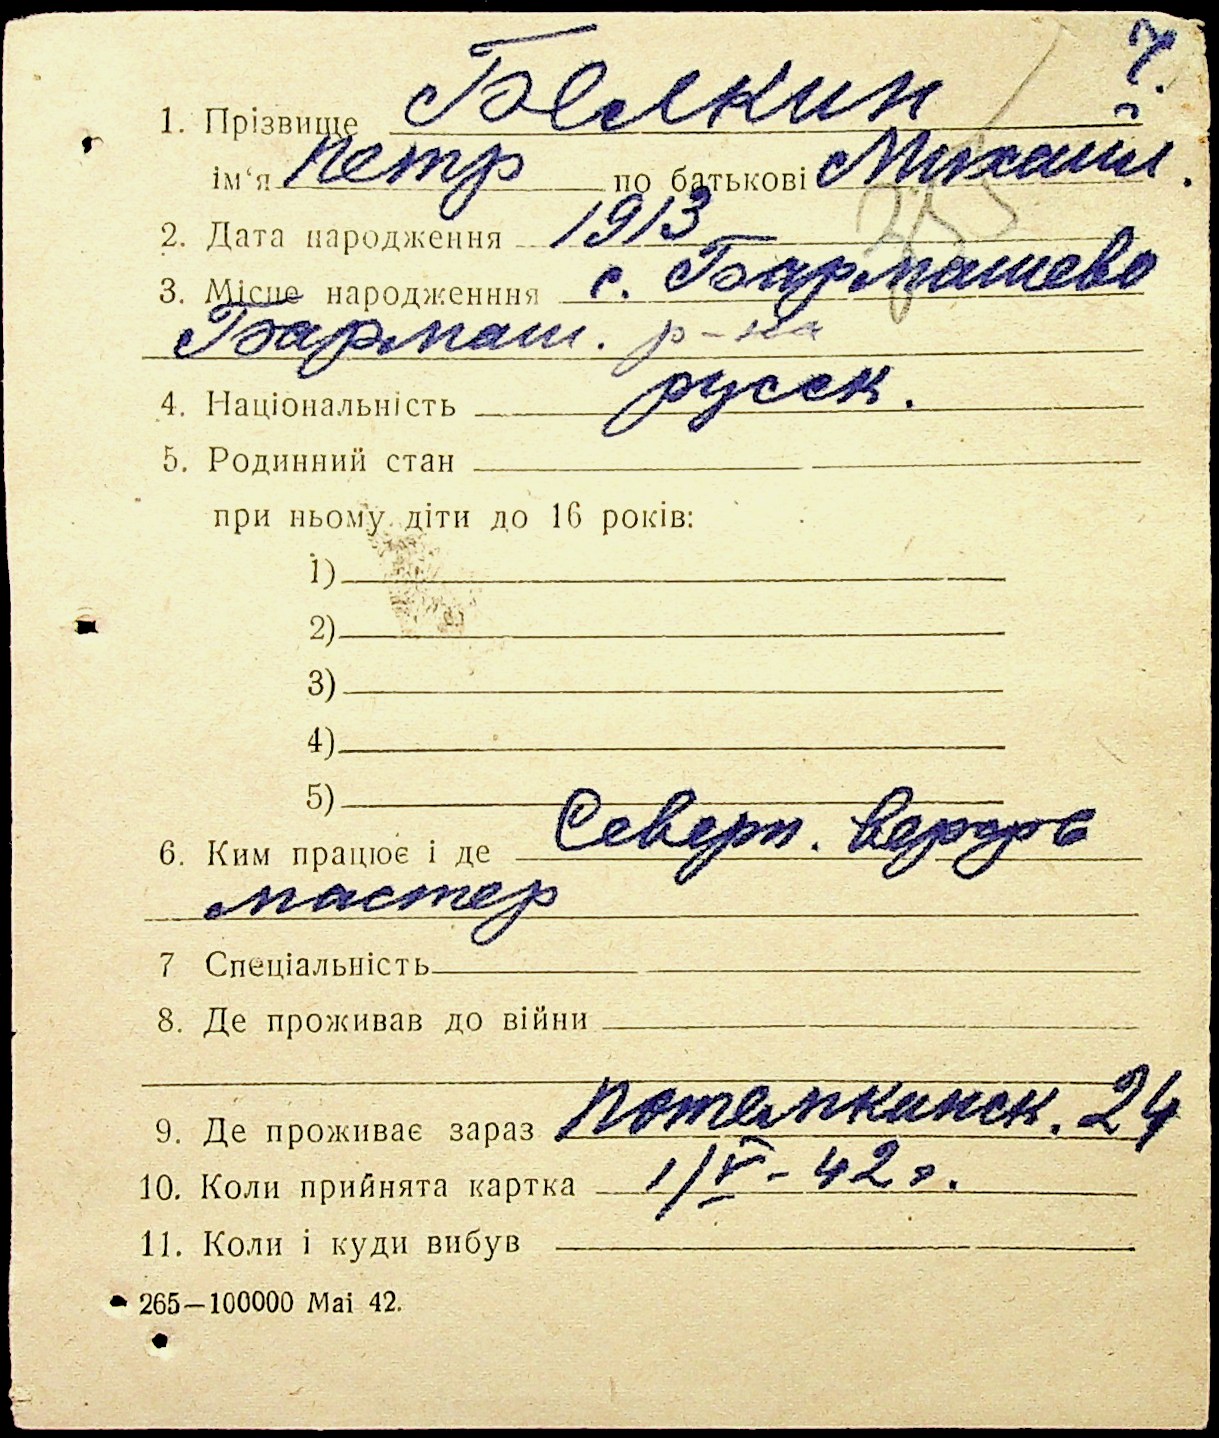 7.
1. Прізвище Белкин
ім'я Петр по батькові Михаил.
2. Дата народження 1913
3. Місце народженння с. Бармашево
Бармаш. р-на
4. Національність русск.
5. Родинний стан
при ньому діти до 16 років:
1)
2)
3)
4)
5)
6. Ким працює і де Северн. верфь
мастер
7 Спеціальність
8. Де проживав до війни
9. Де проживає зараз Потемкинск. 24
10. Коли прийнята картка 1/V-42 г.
11. Коли і куди вибув
265—100000 Mai 42.